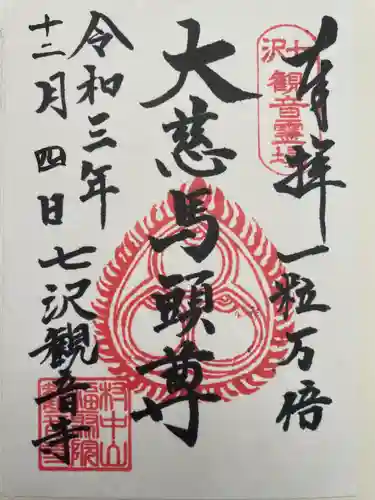 奉拝 一粒万倍
七沢観音霊場
大慈馬頭尊
令和三年
十二月四日 七沢観音寺